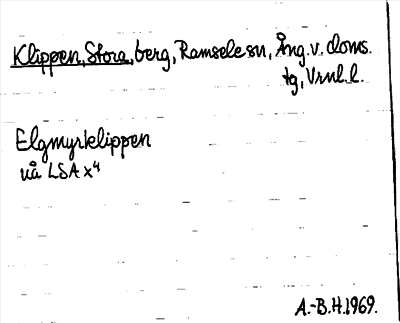 Klippen, Stora, berg, Ramsele sn, Ång. v. doms.
tg, Vrnl. l.
Elgmyrklippen
uå LSA x⁴
A.-B.H.1969.